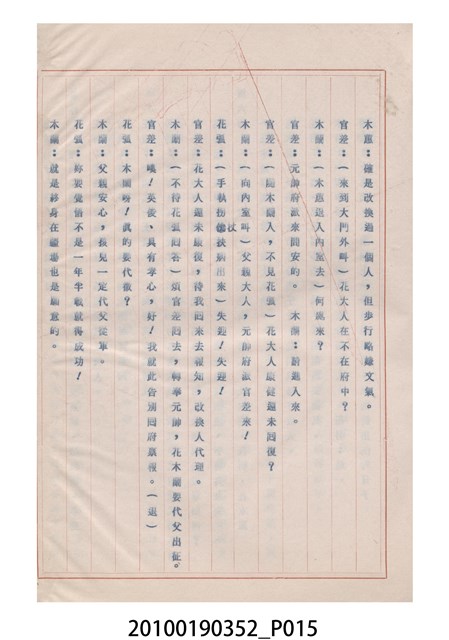 木蕙：確是改換過一個人，但步行略綠文氣。
官差：（來到大門外叫）花大人在不在府中？
木蘭：（木蕙退入內室去）何處來？
官差：元帥府派來問安的。　木蘭：請進入來。
官差：（隨木蘭入，不見花張）花大人康健還未回復？
木蘭：（向內室叫）父親大人，元帥府派官差來！
花張：（手執拐杖扶病出來）失迎！失迎！
官差：花大人還未康復，待我回來去報知，改換人代理。
木蘭：（不待花張回答）煩官差回去，轉奉元帥，花木蘭要代父出征。
官差：噢！吳後、具有孝心，好！我就此告別回府稟報。（退）
花張：木蘭呀！真的要代徵？
木蘭：父親安心，孩兒一定代父從軍。
花張：妳要覺悟不是一年半載就得成功！
木蘭：就是終身在疆場也是願意的。
20100190352_P015